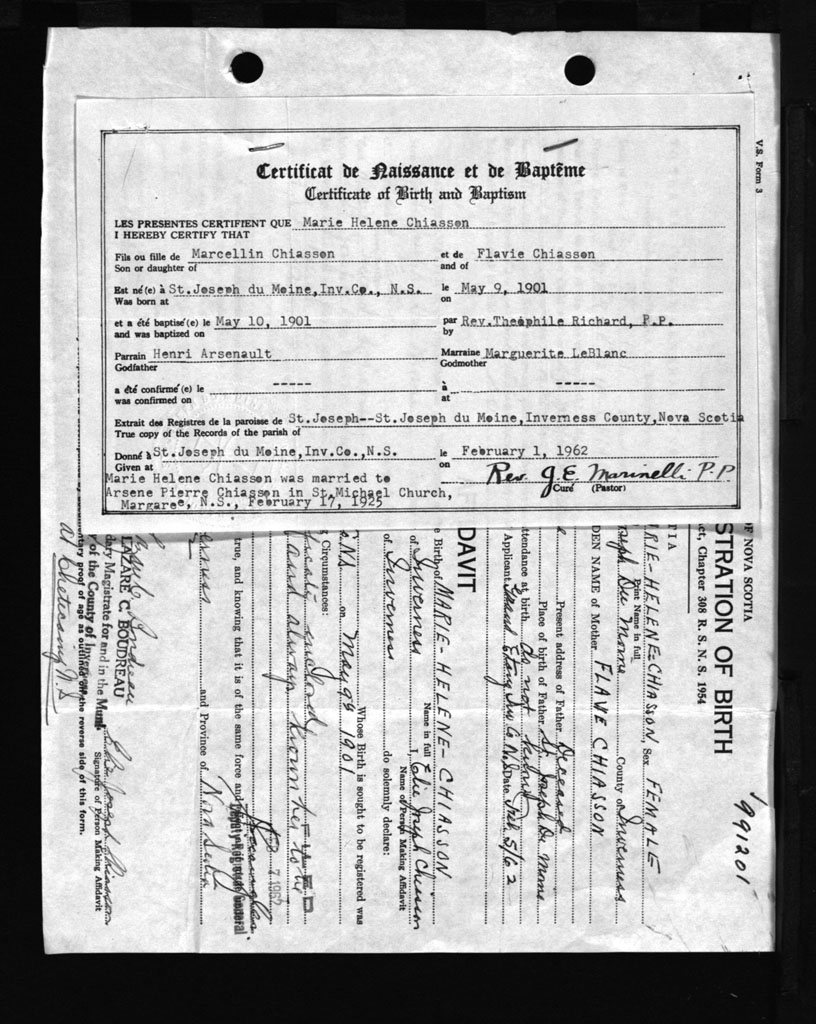 V.S. Form 3
Certificat de Naissance et de Baptême
Certificate of Birth and Baptism
LES PRESENTES CERTIFIENT QUE Marie Helene Chiasson
I HEREBY CERTIFY THAT
Fils ou fille de Marcellin Chiasson et de Flavie Chiasson
Son or daughter of and of
Est né(e) à St.Joseph du Moine,Inv.Co., N.S. le May 9, 1901
Was born at on
et a été baptisé(e) le May 10, 1901 par Rev.Theophile Richard, P.P.
and was baptized on by
Parrain Henri Arsenault Marraine Marguerite LeBlanc
Godfather Godmother
a été confirmé(e) le ----- à -----
was confirmed on at
Extrait des Registres de la paroisse de St.Joseph--St.Joseph du Moine,Inverness County,Nova Scotia
True copy of the Records of the parish of
Donné à St.Joseph du Moine,Inv.Co.,N.S. le February 1, 1962
Given at on
Rev. J. E. Marinelli P.P.
Curé (Pastor)
Marie Helene Chiasson was married to
Arsene Pierre Chiasson in St.Michael Church,
Margaree, N.S., February 17, 1925
991201
OF NOVA SCOTIA
STRATION OF BIRTH
ct, Chapter 308 R. S. N. S. 1954
TIA
RIE-HELENE-CHIASSON, Sex FEMALE
Print Name in full
County of Inverness
DEN NAME of Mother FLAVE CHIASSON
Present address of Father Deceased
Place of birth of Father St. Joseph Du Moine
ttendance at birth do not
Applicant Grand Etang Inv Co N.S Date Feb. 5/62
DAVIT
e Birth of MARIE-HELENE-CHIASSON
Name in full
of Inverness I, Elie Joseph Chiasson
Name of Person Making Affidavit
of Inverness do solemnly declare:
Whose Birth is sought to be registered was
NS on May 9th 1901
g Circumstances:
and always known her to be
FILED
FEB 7 1962
Deputy Registrar General
true, and knowing that it is of the same force and
and Province of Nova Scotia
LAZARE C. BOUDREAU
dary Magistrate for and in the
y of the County of Inverness
Elie Joseph Chiasson
Signature of Person Making Affidavit
ntary proof of age as outlined on the reverse side of this form.
at Cheticamp N.S